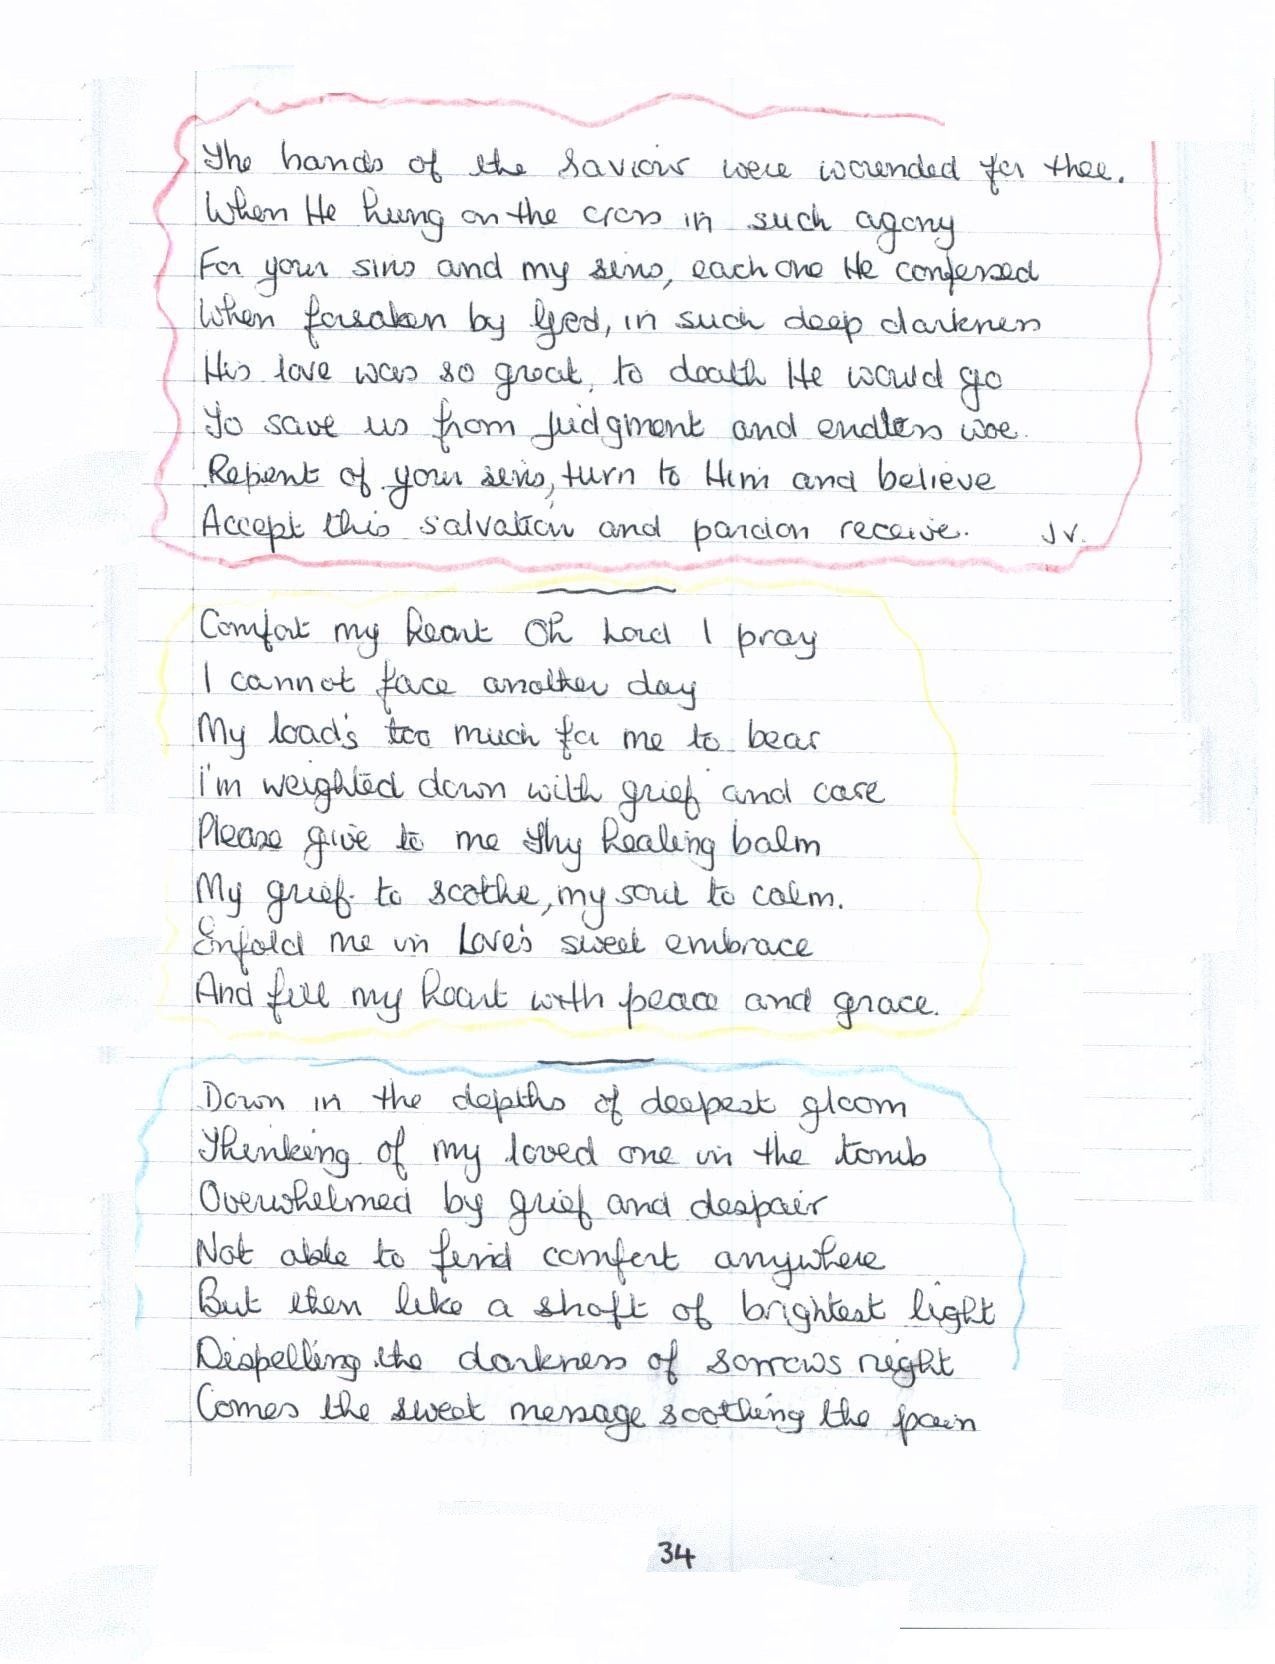 The hands of the Saviour were wounded for thee.
When He hung on the cross in such agony
For your sins and my sins, each one He confessed
When forsaken by God, in such deep darkness
His love was so great, to death He would go
To save us from Judgment and endless woe.
Repent of your sins, turn to Him and believe
Accept this salvation and pardon receive. JV.
Comfort my heart Oh Lord I pray
I cannot face another day
My load's too much for me to bear
I'm weighted down with grief and care
Please give to me Thy healing balm
My grief to soothe, my soul to calm.
Enfold me in Love's sweet embrace
And fill my heart with peace and grace.
Down in the depths of deepest gloom
Thinking of my loved one in the tomb
Overwhelmed by grief and despair
Not able to find comfort anywhere
But then like a shaft of brightest light
Dispelling the darkness of sorrows night
Comes the sweet message soothing the pain
34